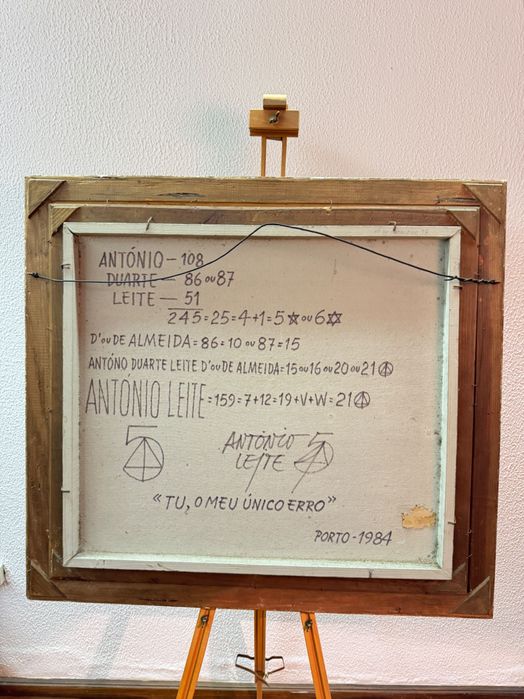 ANTÓNIO - 108
DUARTE - 86 OU 87
LEITE - 51
245 = 25 = 4+1 = 5 ★ OU 6 ✡
D' OU DE ALMEIDA = 86 = 10 OU 87 = 15
ANTÓNO DUARTE LEITE D' OU DE ALMEIDA = 15 OU 16 OU 20 OU 21
ANTÓNIO LEITE = 159 = 7+12 = 19 + V + W = 21
5
ANTÓNIO 5
LEITE
"TU, O MEU ÚNICO ERRO"
PORTO - 1984